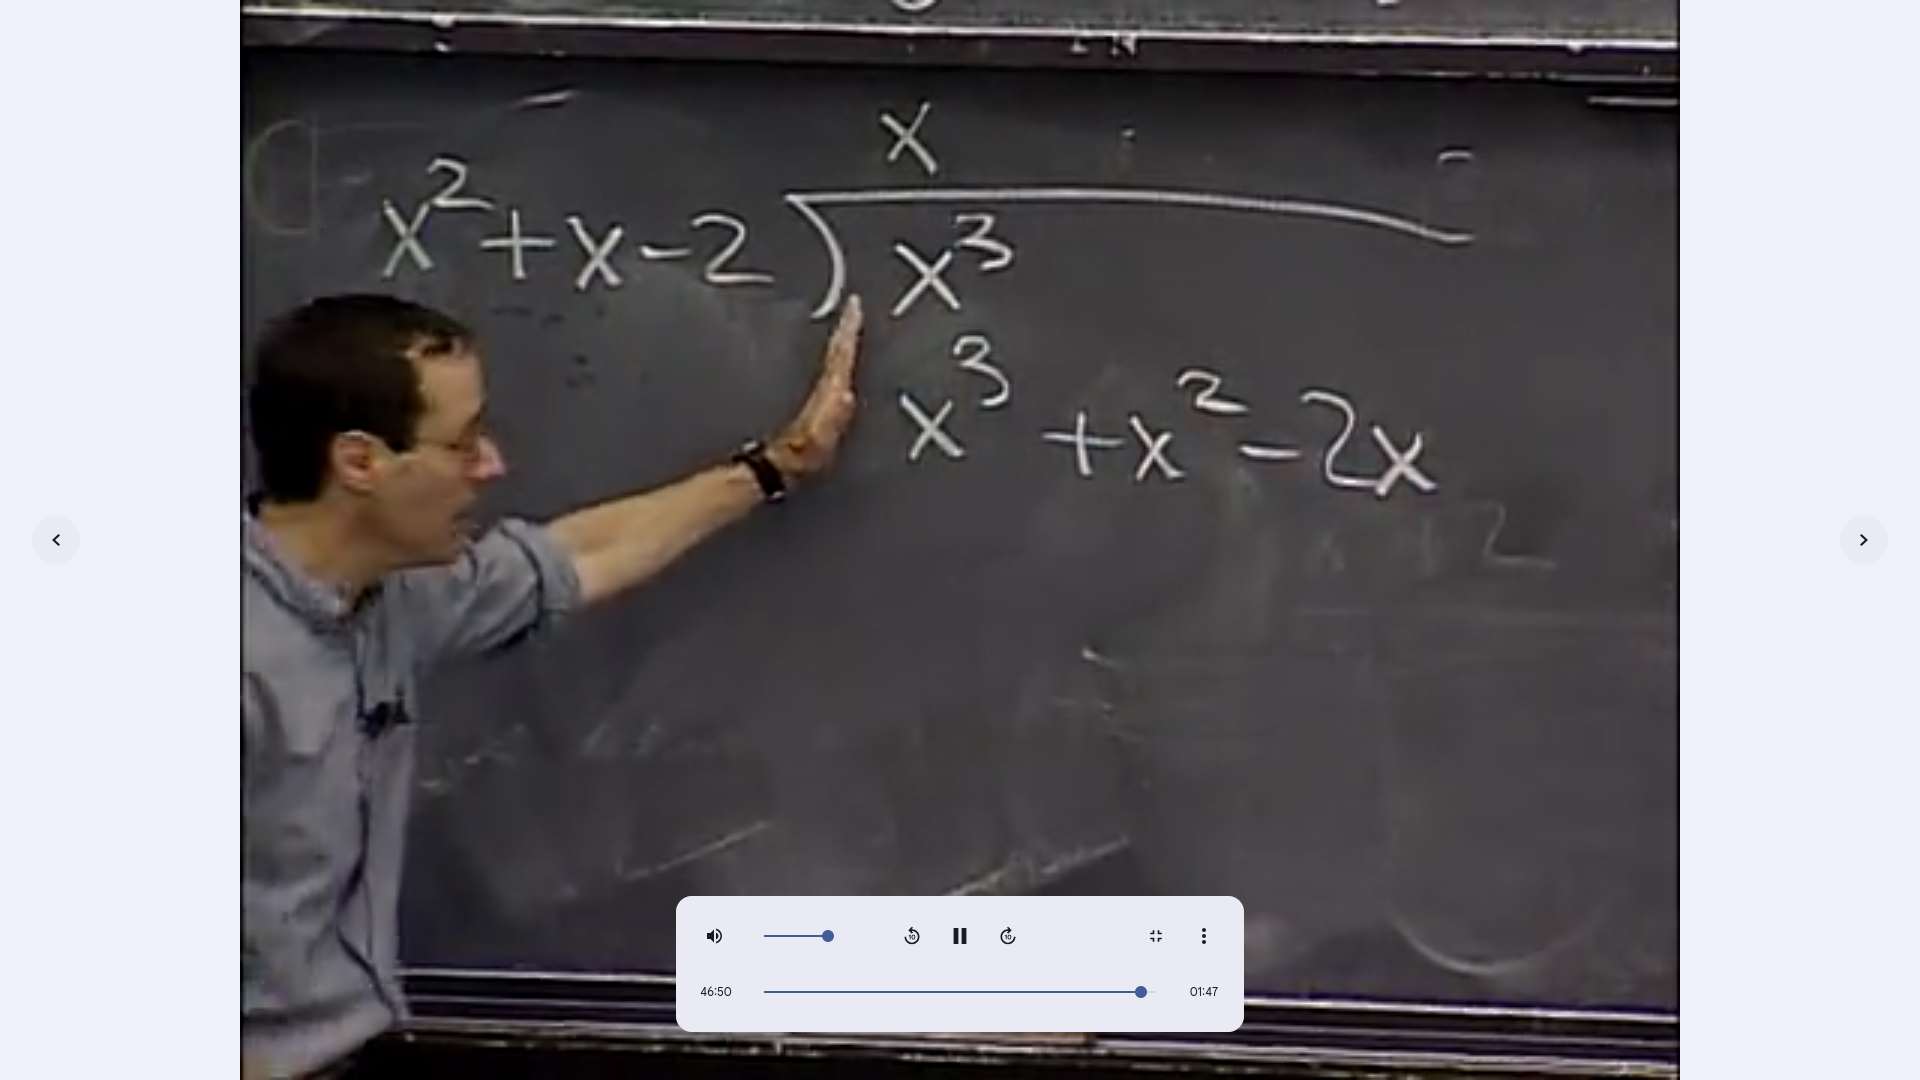 x
x² + x - 2 ) x³
x³ + x² - 2x
2
46:50 01:47